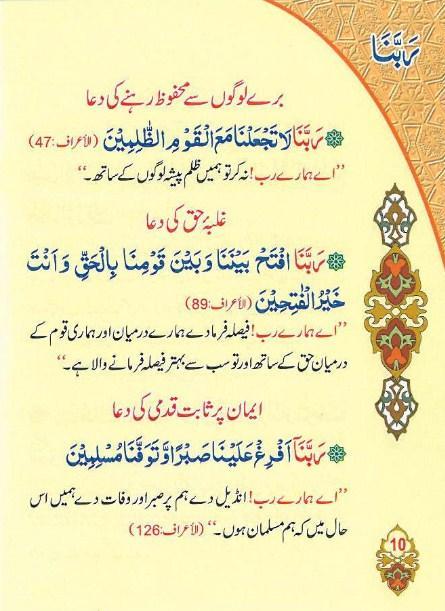 رَبَّنَا
برے لوگوں سے محفوظ رہنے کی دعا
رَبَّنَا لَا تَجْعَلْنَا مَعَ الْقَوْمِ الظّٰلِمِيْنَ (الأعراف:47)
’’اے ہمارے رب! نہ کر تو ہمیں ظلم پیشہ لوگوں کے ساتھ۔‘‘
غلبۂ حق کی دعا
رَبَّنَا افْتَحْ بَيْنَنَا وَبَيْنَ قَوْمِنَا بِالْحَقِّ وَاَنْتَ
خَيْرُ الْفٰتِحِيْنَ (الأعراف:89)
’’اے ہمارے رب! فیصلہ فرما دے ہمارے درمیان اور ہماری قوم کے
درمیان حق کے ساتھ اور تو سب سے بہتر فیصلہ فرمانے والا ہے۔‘‘
ایمان پر ثابت قدمی کی دعا
رَبَّنَآ اَفْرِغْ عَلَيْنَا صَبْرًا وَّتَوَفَّنَا مُسْلِمِيْنَ
’’اے ہمارے رب! انڈیل دے ہم پر صبر اور وفات دے ہمیں اس
حال میں کہ ہم مسلمان ہوں۔‘‘ (الأعراف:126)
10